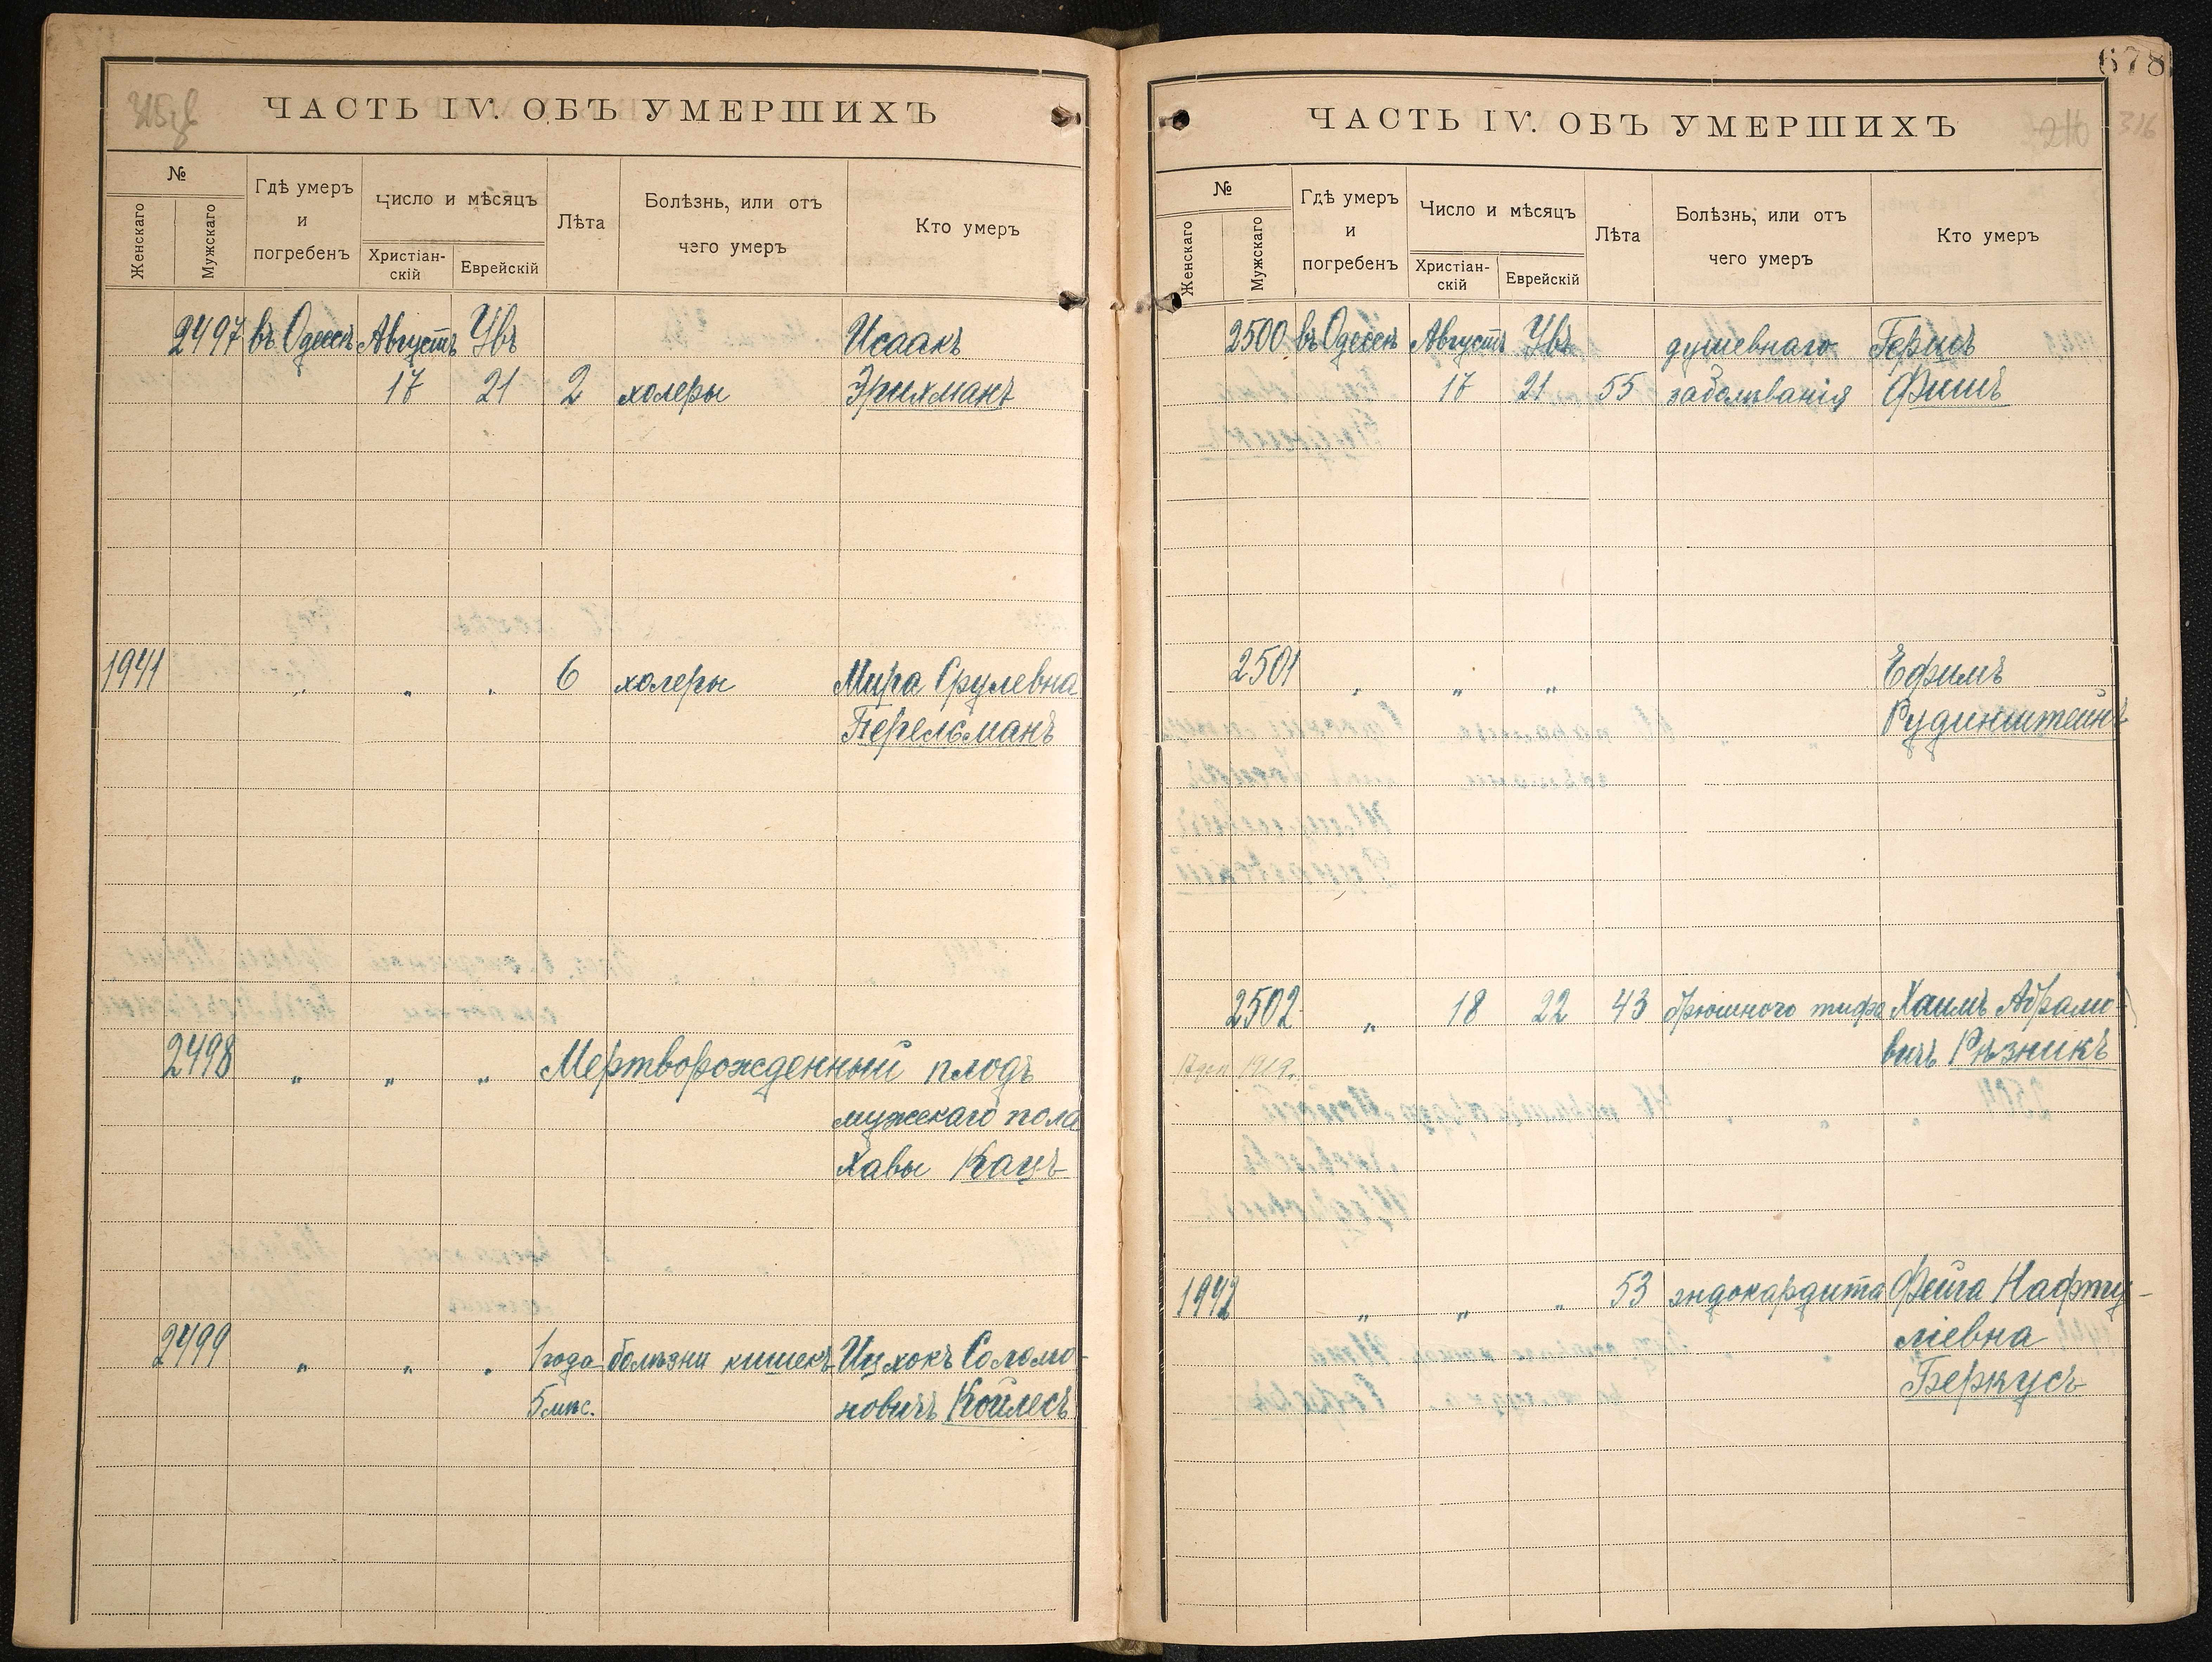 ЧАСТЬ IV. ОБЪ УМЕРШИХЪ
№
Женскаго
Мужскаго
Гдѣ умеръ
и
погребенъ
Число и мѣсяцъ
Христіан-
скій
Еврейскій
Лѣта
Болѣзнь, или отъ
чего умеръ
Кто умеръ
2497 въ Одессѣ Августъ Увъ Исаакъ
17 21 2 холеры Эрихманъ
1941 " " " 6 холеры Мира Срулевна
Перельманъ
2498 " " " Мертворожденный плодъ
мужскаго пола
Хавы Кацъ
2499 " " " 1 года болѣзни кишекъ Ицхокъ Соломо-
5 мѣс. новичъ Койлесъ
678
316
ЧАСТЬ IV. ОБЪ УМЕРШИХЪ
№
Женскаго
Мужскаго
Гдѣ умеръ
и
погребенъ
Число и мѣсяцъ
Христіан-
скій
Еврейскій
Лѣта
Болѣзнь, или отъ
чего умеръ
Кто умеръ
2500 въ Одессѣ Августъ Увъ душевнаго Герцъ
17 21 55 заболѣванія Фишъ
2501 " " " Ефимъ
Рудинштейнъ
2502 " 18 22 43 брюшного тифа Хаимъ Абрамо-
вичъ Рѣзникъ
1919.
1942 " " " 53 эндокардита Фейга Нафту-
ліевна
Беркусъ